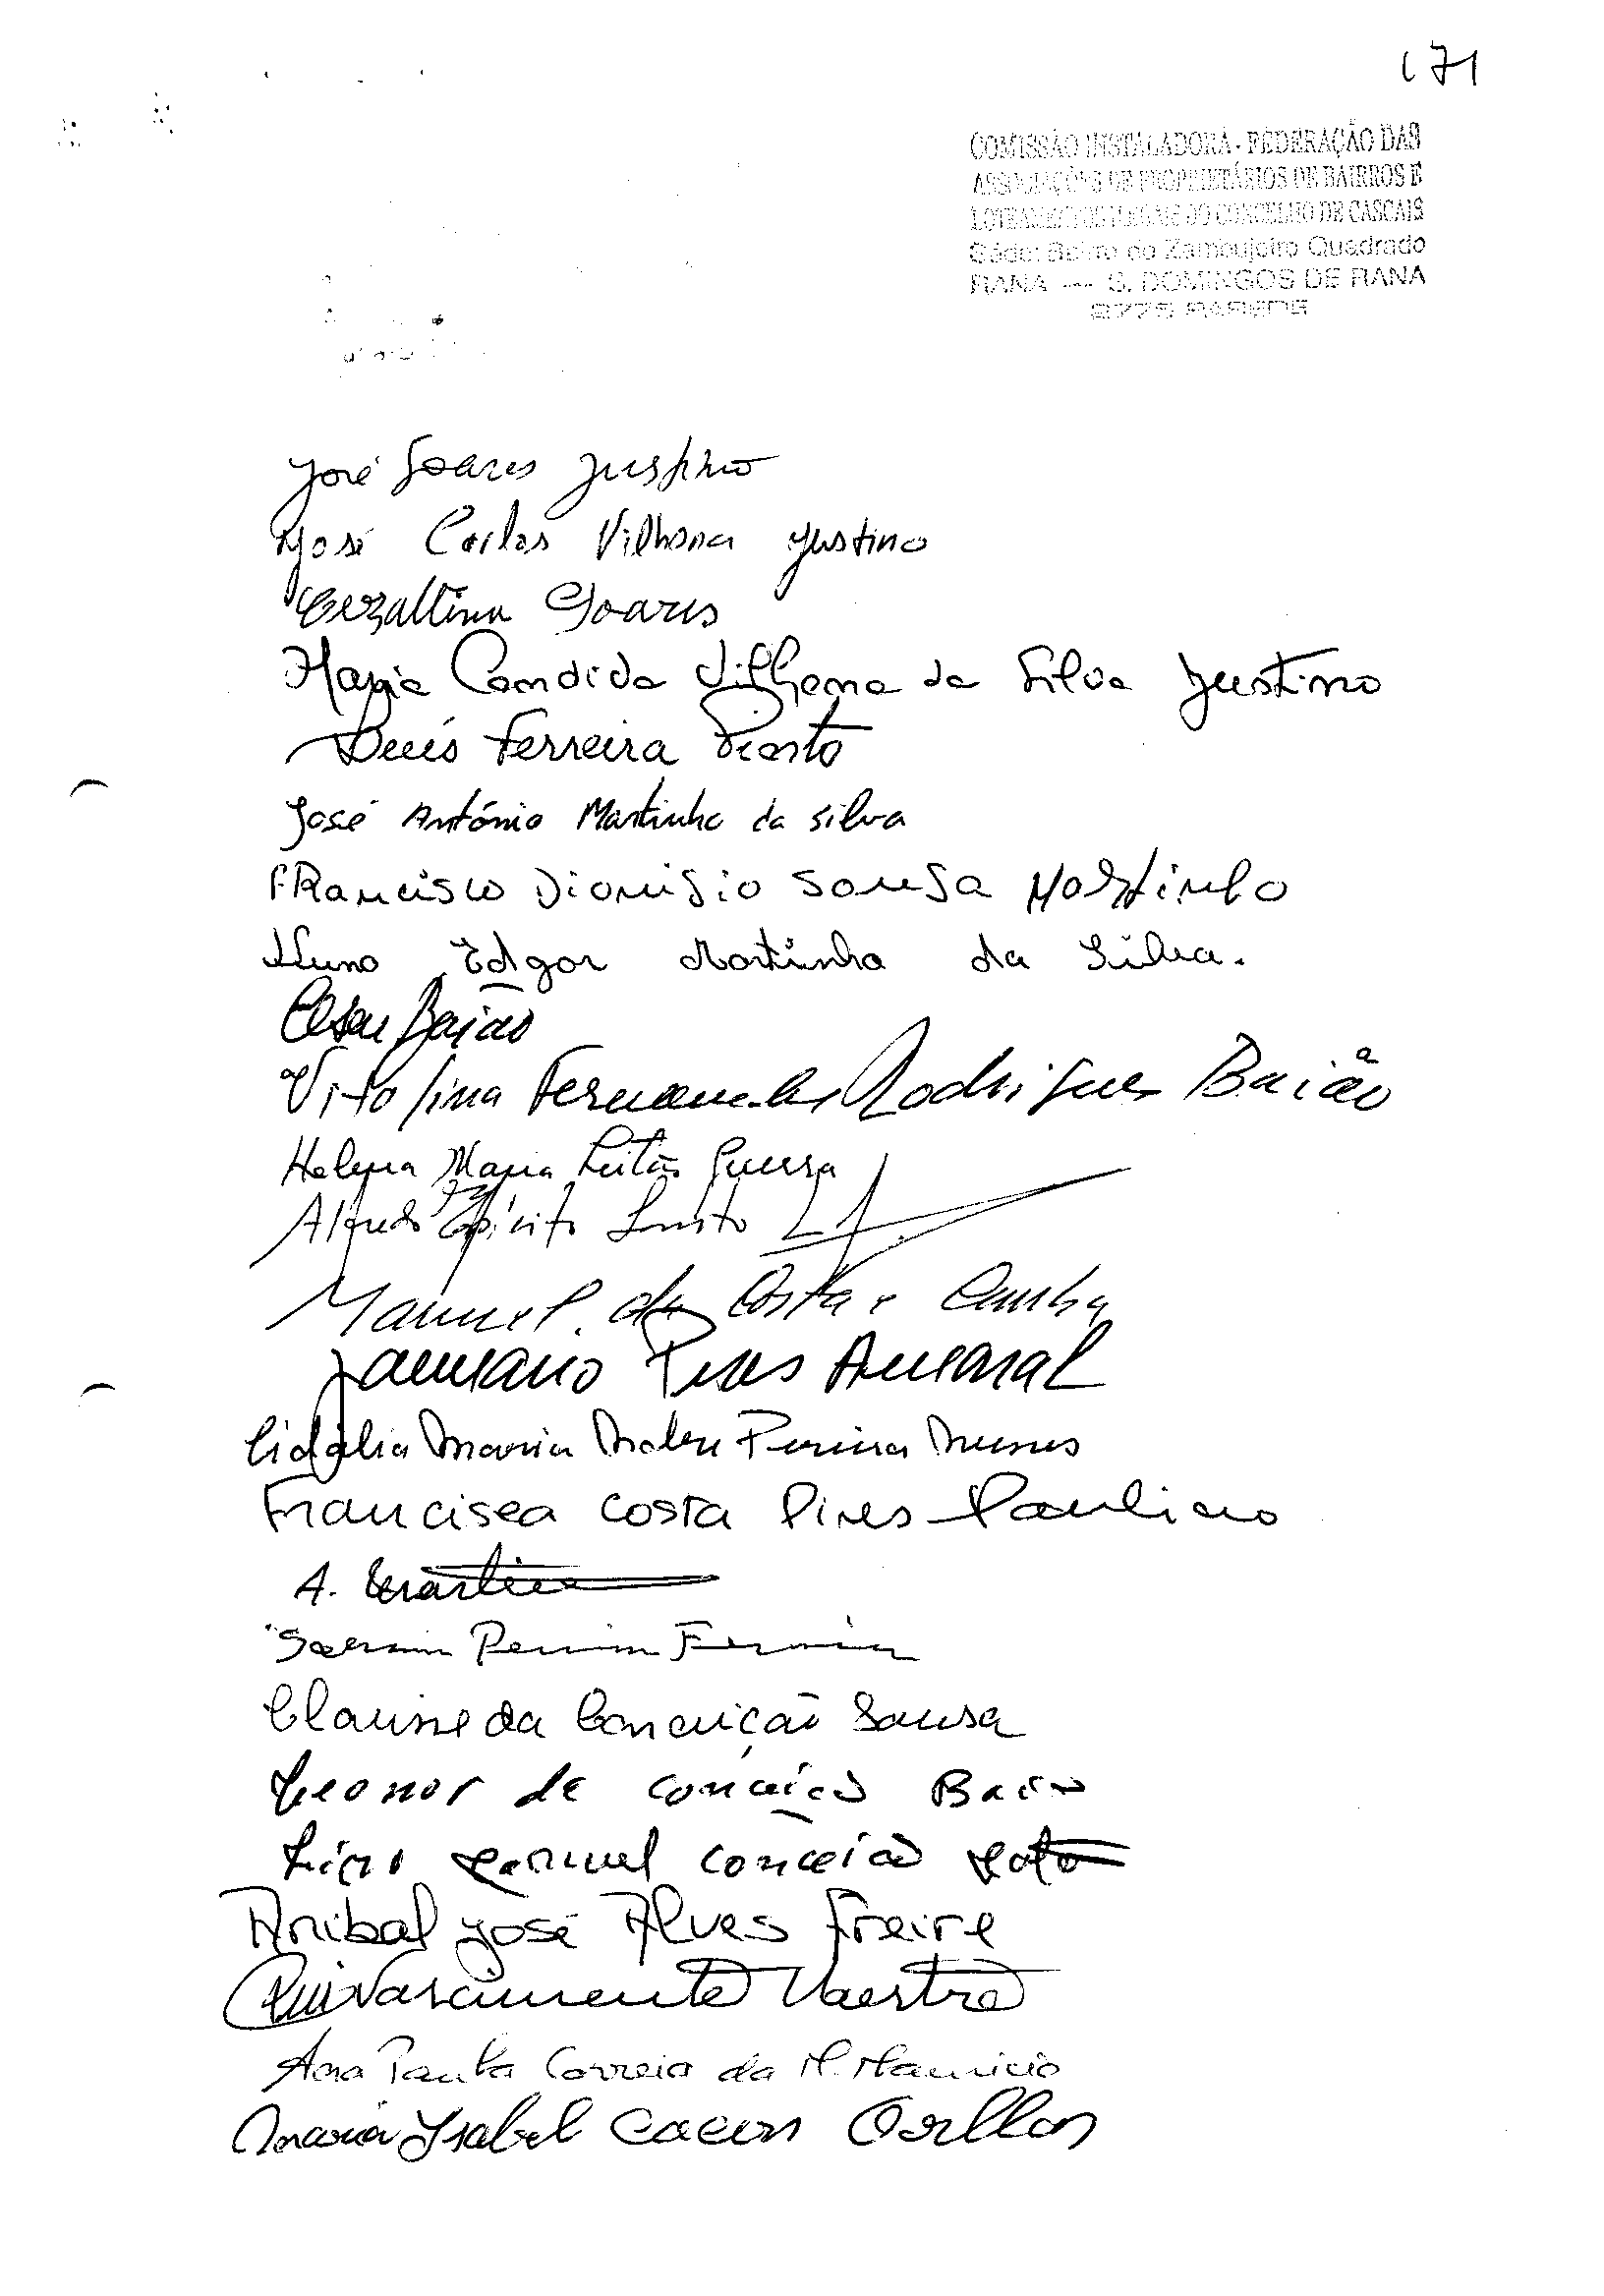 171
COMISSÃO INSTALADORA - FEDERAÇÃO DAS
ASSOCIAÇÕES DE PROPRIETÁRIOS DE BAIRROS E
LOTEAMENTOS ILEGAIS DO CONCELHO DE CASCAIS
Séde: Bairro do Zambujeiro Quadrado
RANA --- S. DOMINGOS DE RANA
2775 PAREDE
José Soares Justino
José Carlos Vilhena Justino
Cezaltina Soares
Maria Candida Vilhena da Silva Justino
Ferreira
José António Martinho da Silva
FRancisco Dionisio Sousa Martinho
Nuno Edgar Martinho da Silva.
Cesar Baião
Vitolina Fernandes Rodrigues Baião
Helena Maria Leitão Guerra
Alfredo Espirito Santo
Manuel da Costa e Cunha
Januario Pires Amaral
Lidália Maria Pereira Nunes
Francisca Costa Pires Paulino
A. Martins
Pereira Ferreira
da Conceição Sousa
Leonor da Conceição Baião
Manuel Conceição
Anibal José Alves Freire
Rui Nascimento Maestre
Ana Paula Correia da M. Mauricio
Maria Isabel